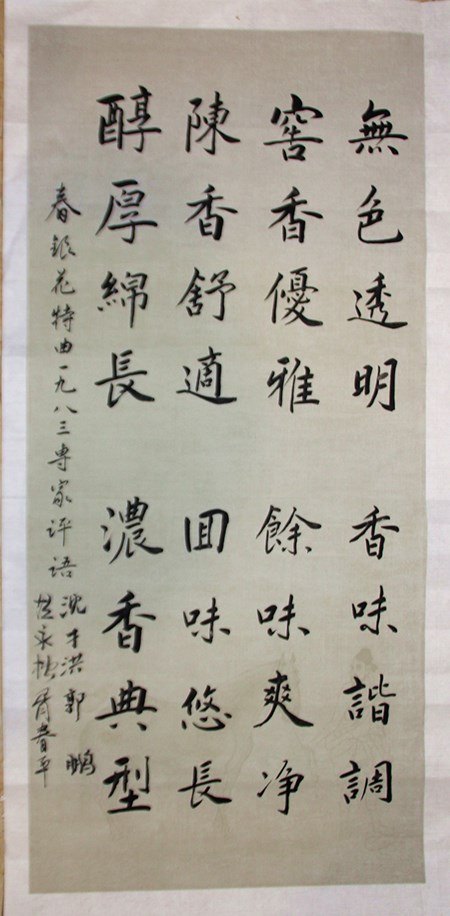 無色透明 香味諧調
窖香優雅 餘味爽净
陳香舒適 回味悠長
醇厚綿長 濃香典型
春銀花特曲一九八三專家评语
沈才洪 郭鹏
春平